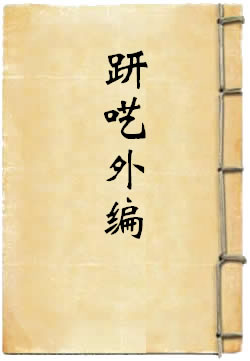 趼呓外编